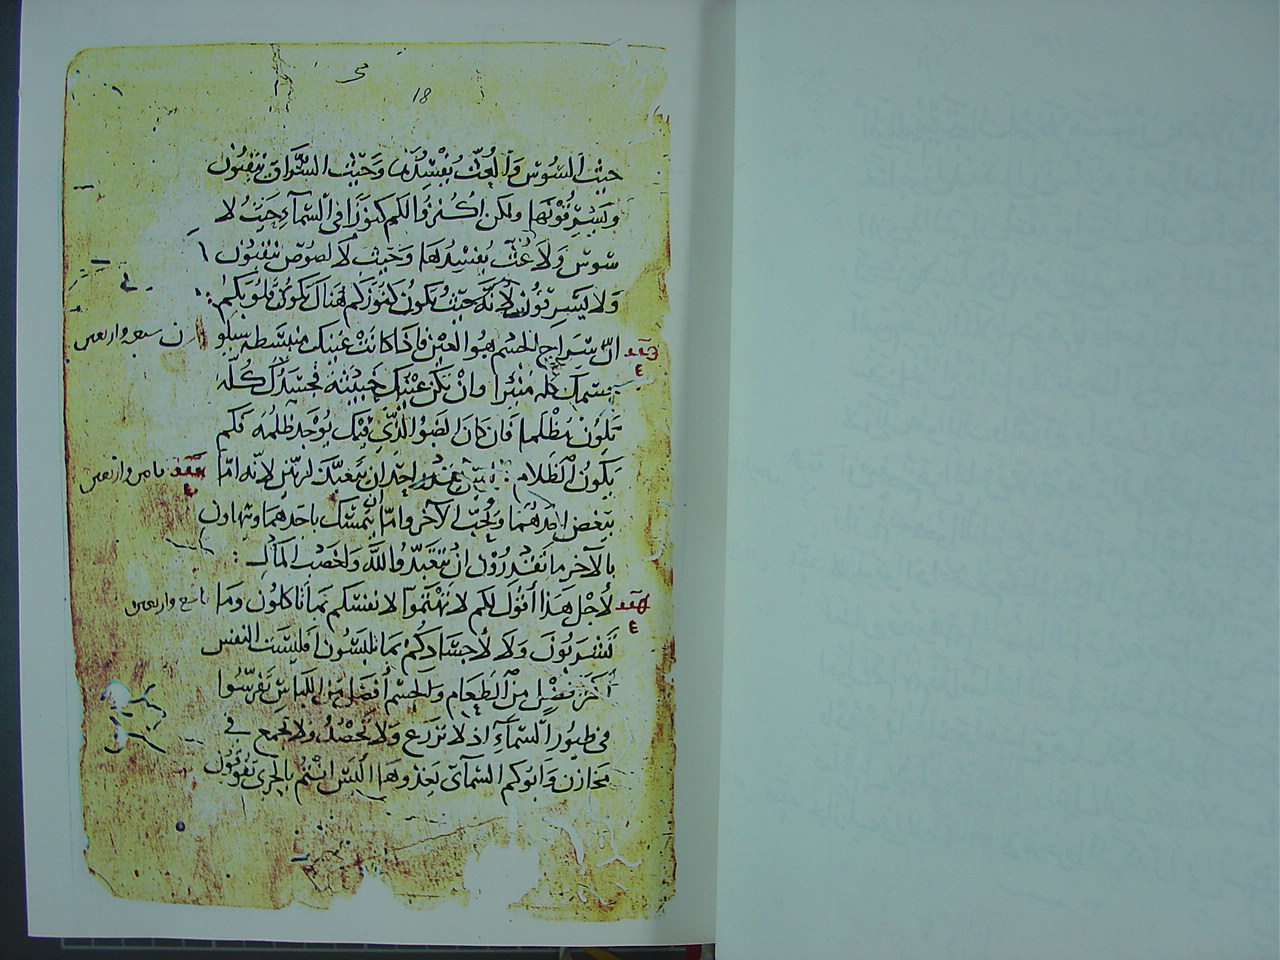 محى
18
حيث السوس والعث يفسدها وحيث السراق ينقبون
ويسرقونها ولكن اكنزوا لكم كنوزا في السماء حيث لا
سوس ولا عث يفسدها وحيث لا لصوص ينقبون
ولا يسرقون لانه حيث يكون كنوزكم هناك يكون قلوبكم
ان سراج الجسم هو العين فاذا كانت عينك منبسطه سبع واربعين
جسمك كله منيرا وان تكن عينك خبيثه فجسدك كله
يكون مظلما فان كان الضو الذي فيك يوجد ظلمه فكم
يكون الظلام واحد ان يتعبد لربين لانه اما ثامن واربعين
يبغض احدهما ويحب الآخر واما ان يتمسك باحدهما ويتهاون
بالآخر ما تقدرون ان تتعبدوا لله ولخصب المال
لأجل هذا أقول لكم لا تهتموا لانفسكم بما تاكلون وما تاسع واربعين
تشربون ولا لأجسادكم بما تلبسون افليست النفس
من الطعام والجسم أفضل من اللباس تفرسوا
في طيور السماء اذ لا تزرع ولا تحصد ولا تجمع في
مخازن وابوكم السماى يغذوها اليس انتم بالحرى تفوقون